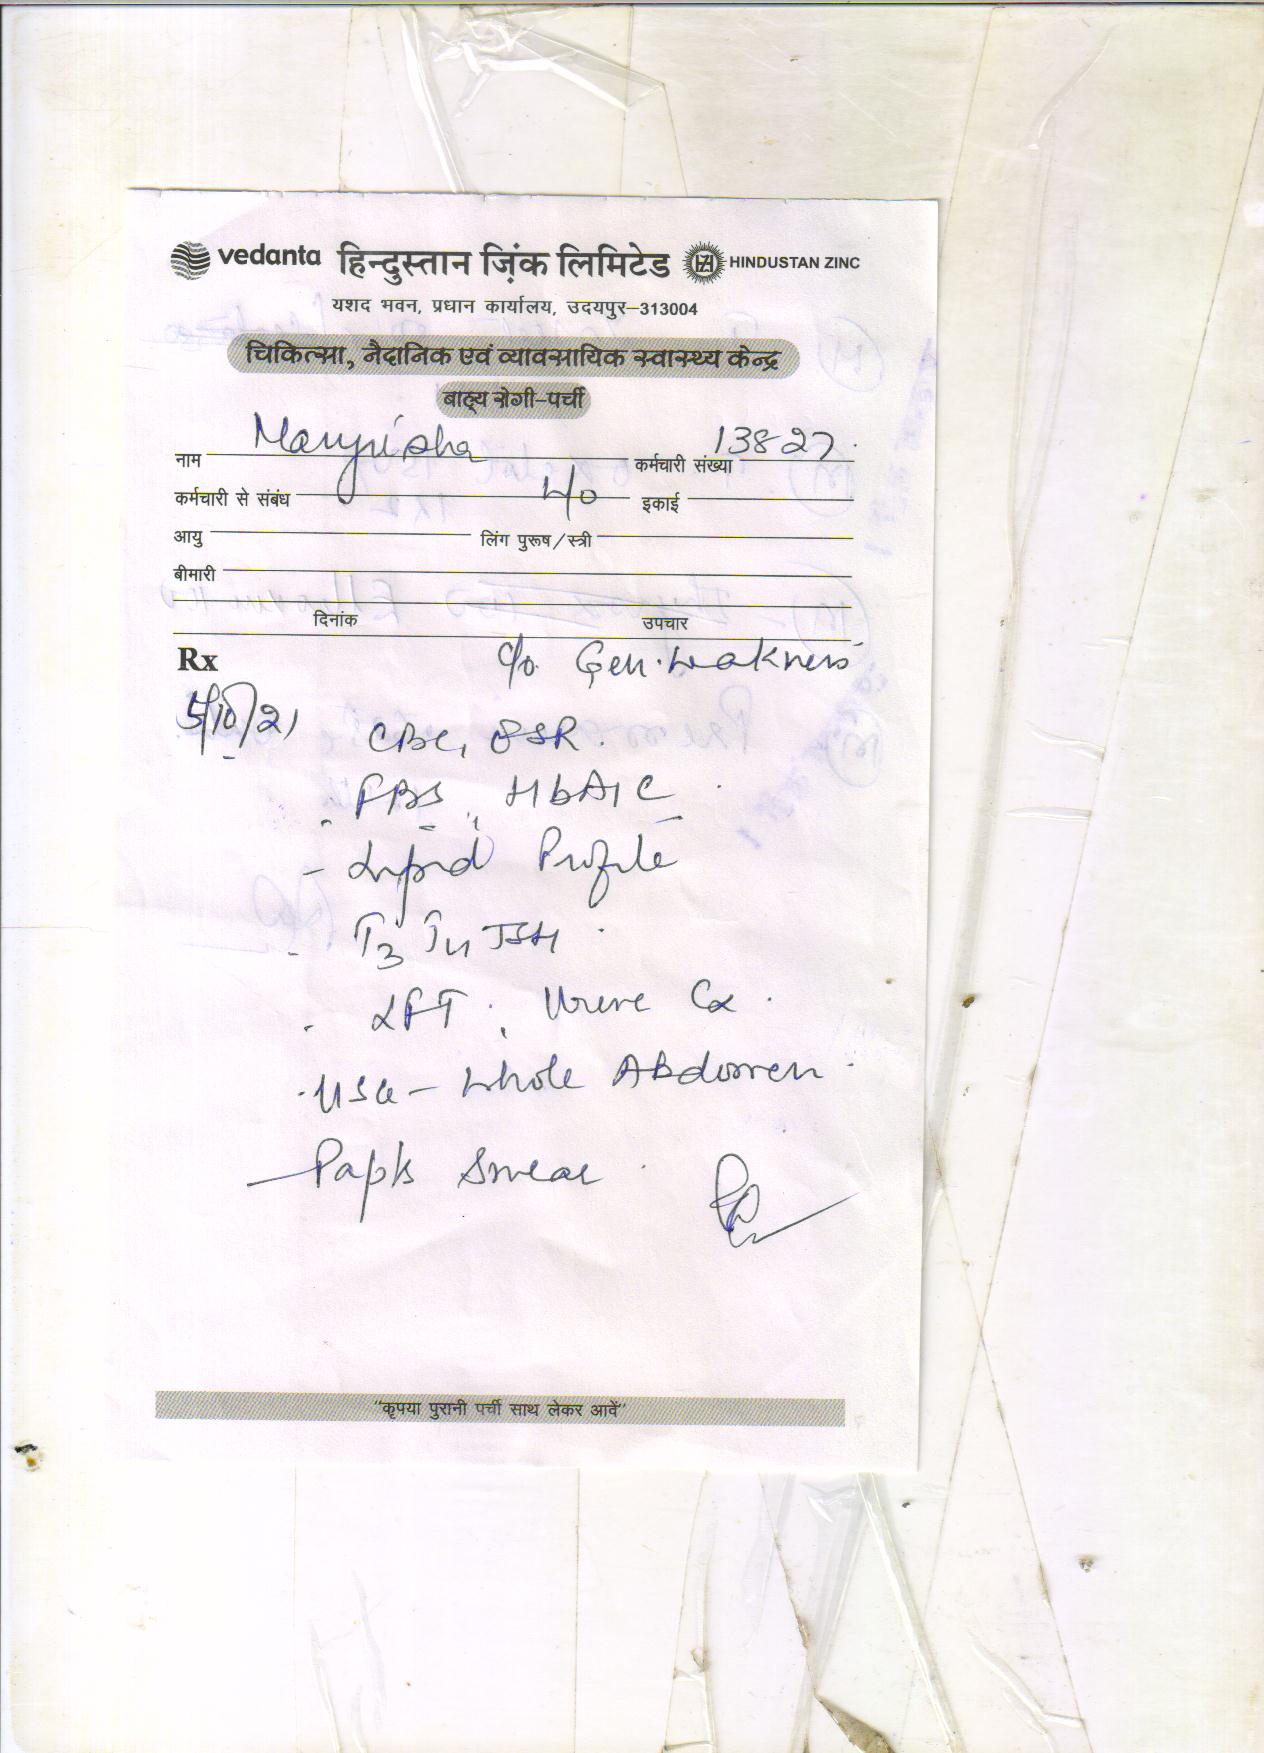 vedanta हिन्दुस्तान ज़िंक लिमिटेड HINDUSTAN ZINC
यशद भवन, प्रधान कार्यालय, उदयपुर–313004
चिकित्सा, नैदानिक एवं व्यावसायिक स्वास्थ्य केन्द्र
बाह्य रोगी-पर्ची
नाम कर्मचारी संख्या 13827
कर्मचारी से संबंध W/o इकाई
आयु लिंग पुरूष/स्त्री
बीमारी
दिनांक उपचार
Rx c/o Gen. Weakness
5/10/21 CBC, ESR.
FBS, HbA1C
- Lipid Profile
- T3 T4 TSH
- LFT, Urine
- USG - Whole Abdomen
- Smear
"कृपया पुरानी पर्ची साथ लेकर आवें"